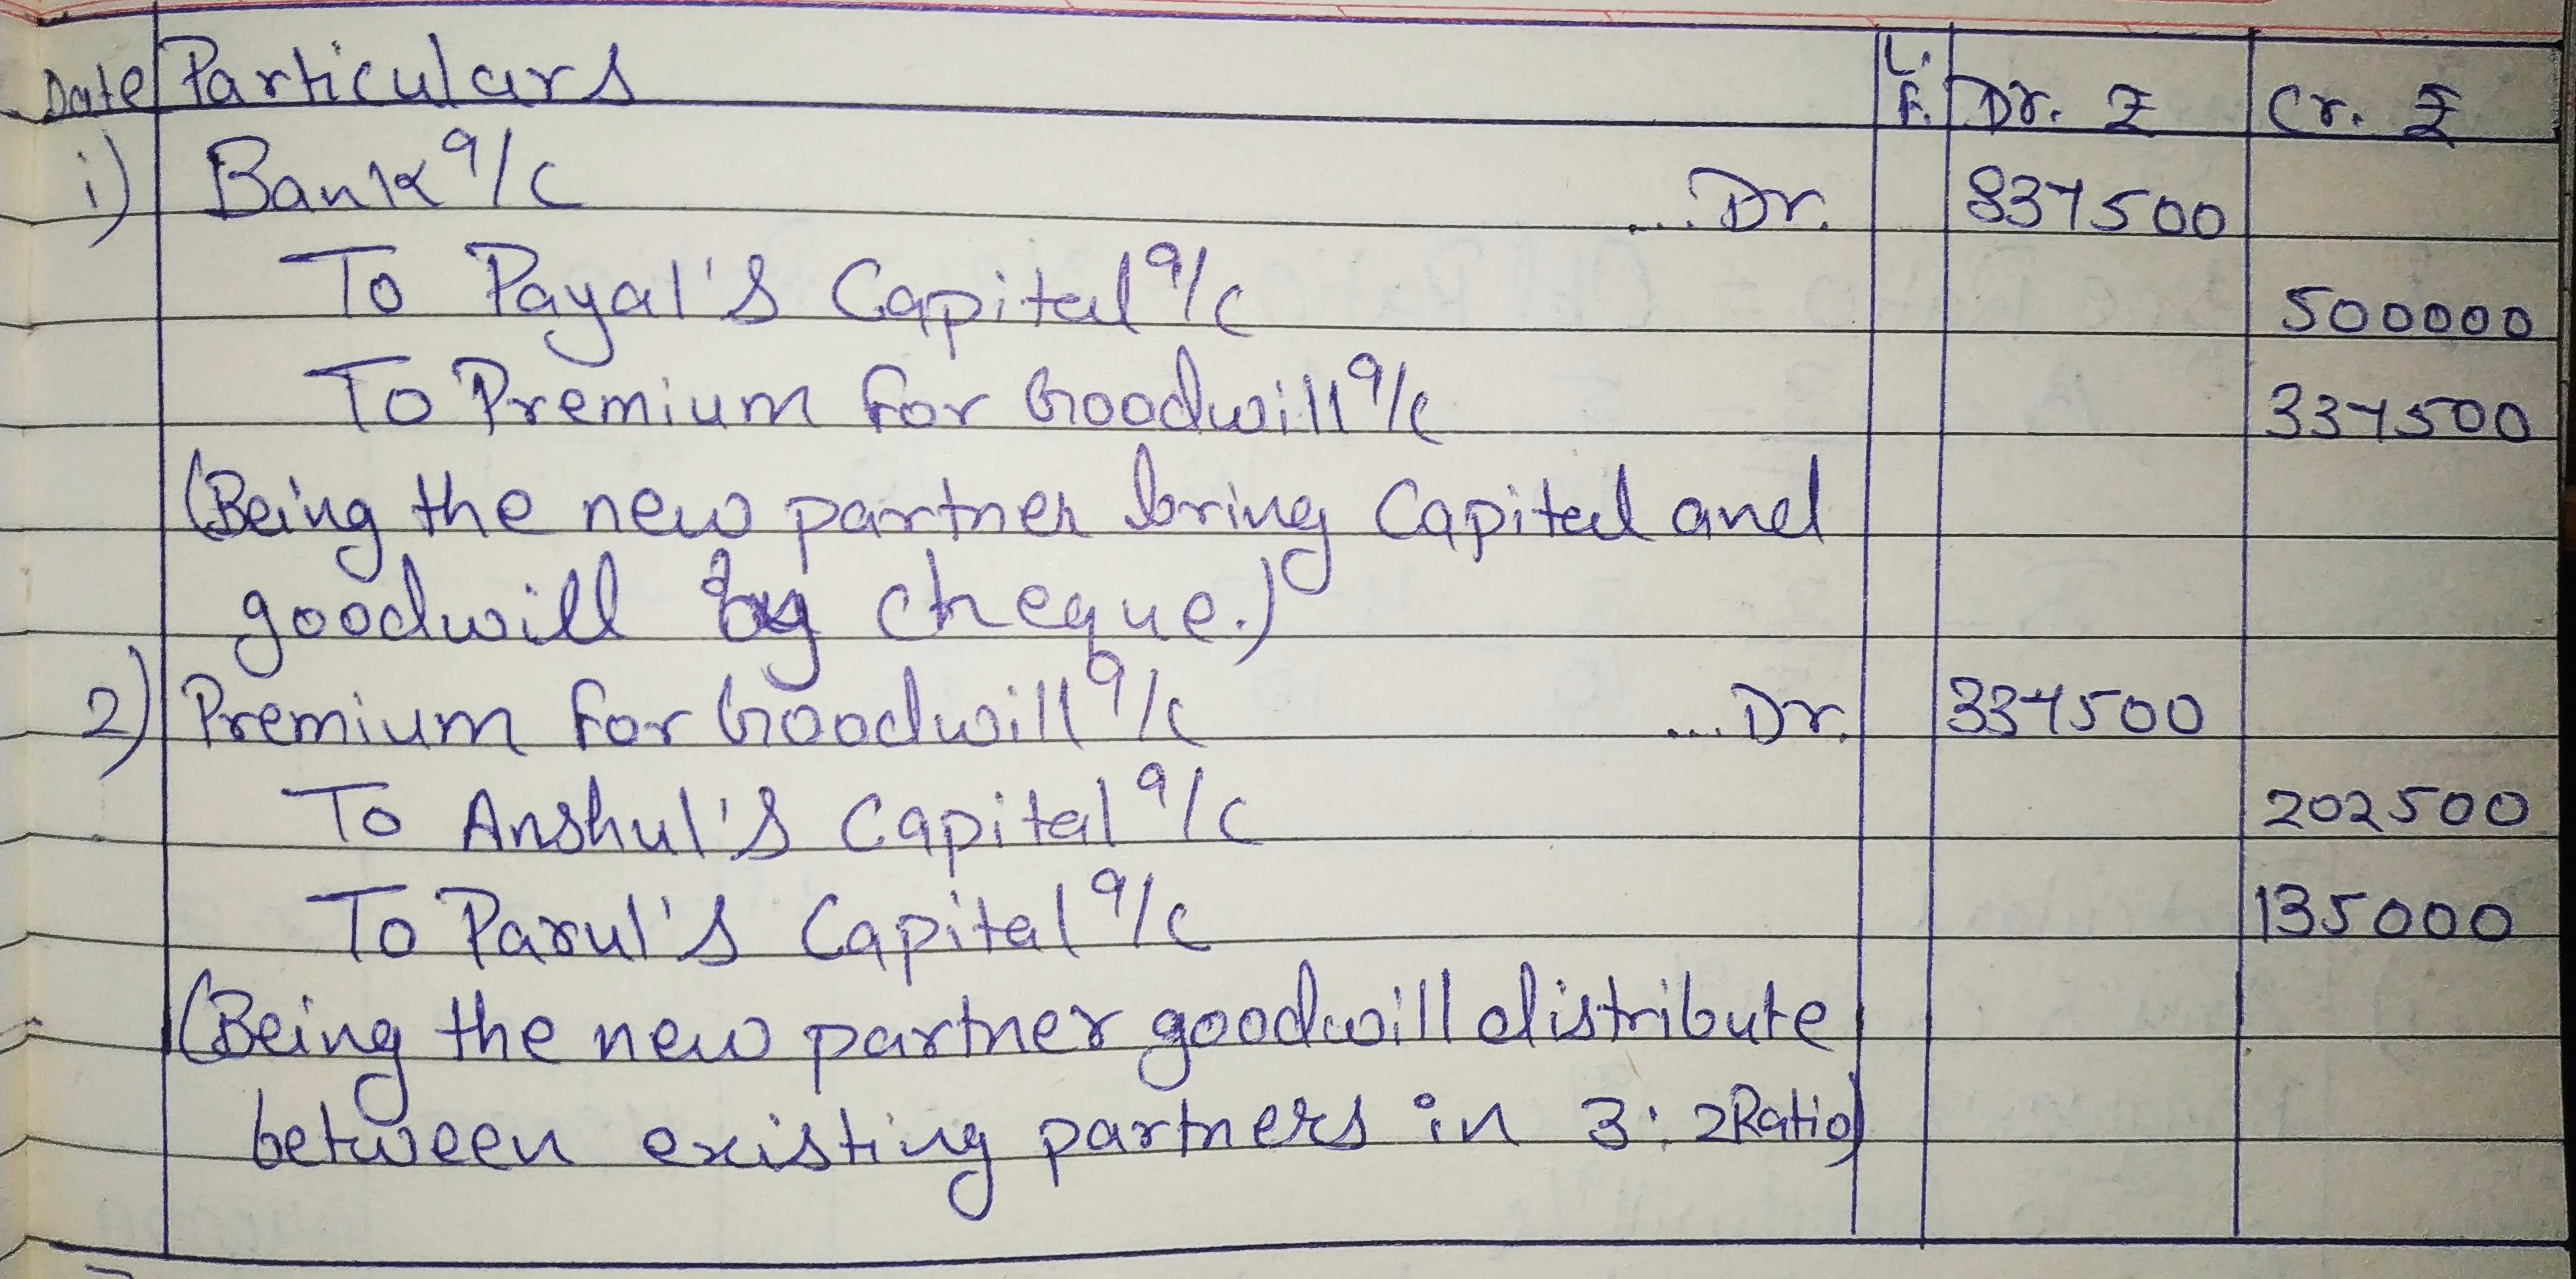 Date Particulars L.F. Dr. ₹ Cr. ₹
i) Bank a/c ....Dr. 837500
To Payal's Capital a/c 500000
To Premium for Goodwill a/c 337500
(Being the new partner bring Capital and
goodwill by cheque.)
2) Premium for Goodwill a/c ....Dr. 337500
To Anshul's Capital a/c 202500
To Parul's Capital a/c 135000
(Being the new partner goodwill distribute
between existing partners in 3:2 Ratio)